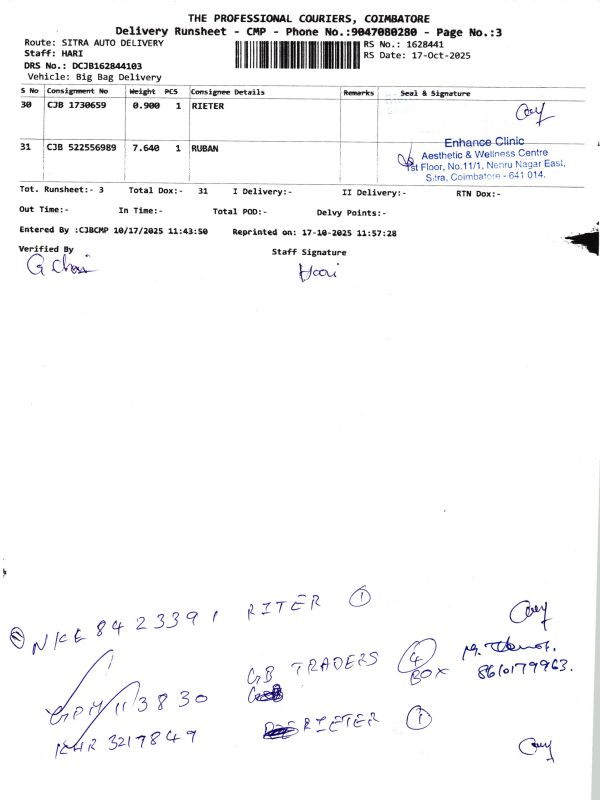 THE PROFESSIONAL COURIERS, COIMBATORE
Delivery Runsheet - CMP - Phone No.:9047080280 - Page No.:3
Route: SITRA AUTO DELIVERY
Staff: HARI
DRS No.: DCJB162844103
Vehicle: Big Bag Delivery
RS No.: 1628441
RS Date: 17-Oct-2025
S No Consignment No Weight PCS Consignee Details Remarks Seal & Signature
30 CJB 1730659 0.900 1 RIETER
31 CJB 522556989 7.640 1 RUBAN
Enhance Clinic
Aesthetic & Wellness Centre
1st Floor, No.11/1, Nehru Nagar East,
Sitra, Coimbatore - 641 014.
Tot. Runsheet:- 3 Total Dox:- 31 I Delivery:- II Delivery:- RTN Dox:-
Out Time:- In Time:- Total POD:- Delvy Points:-
Entered By :CJBCMP 10/17/2025 11:43:50 Reprinted on: 17-10-2025 11:57:28
Verified By Staff Signature
Hari
NKE 8423391 RITER 1
GB TRADERS 4 BOX
8610179963.
113830
KHR 3217849 RIETER 1